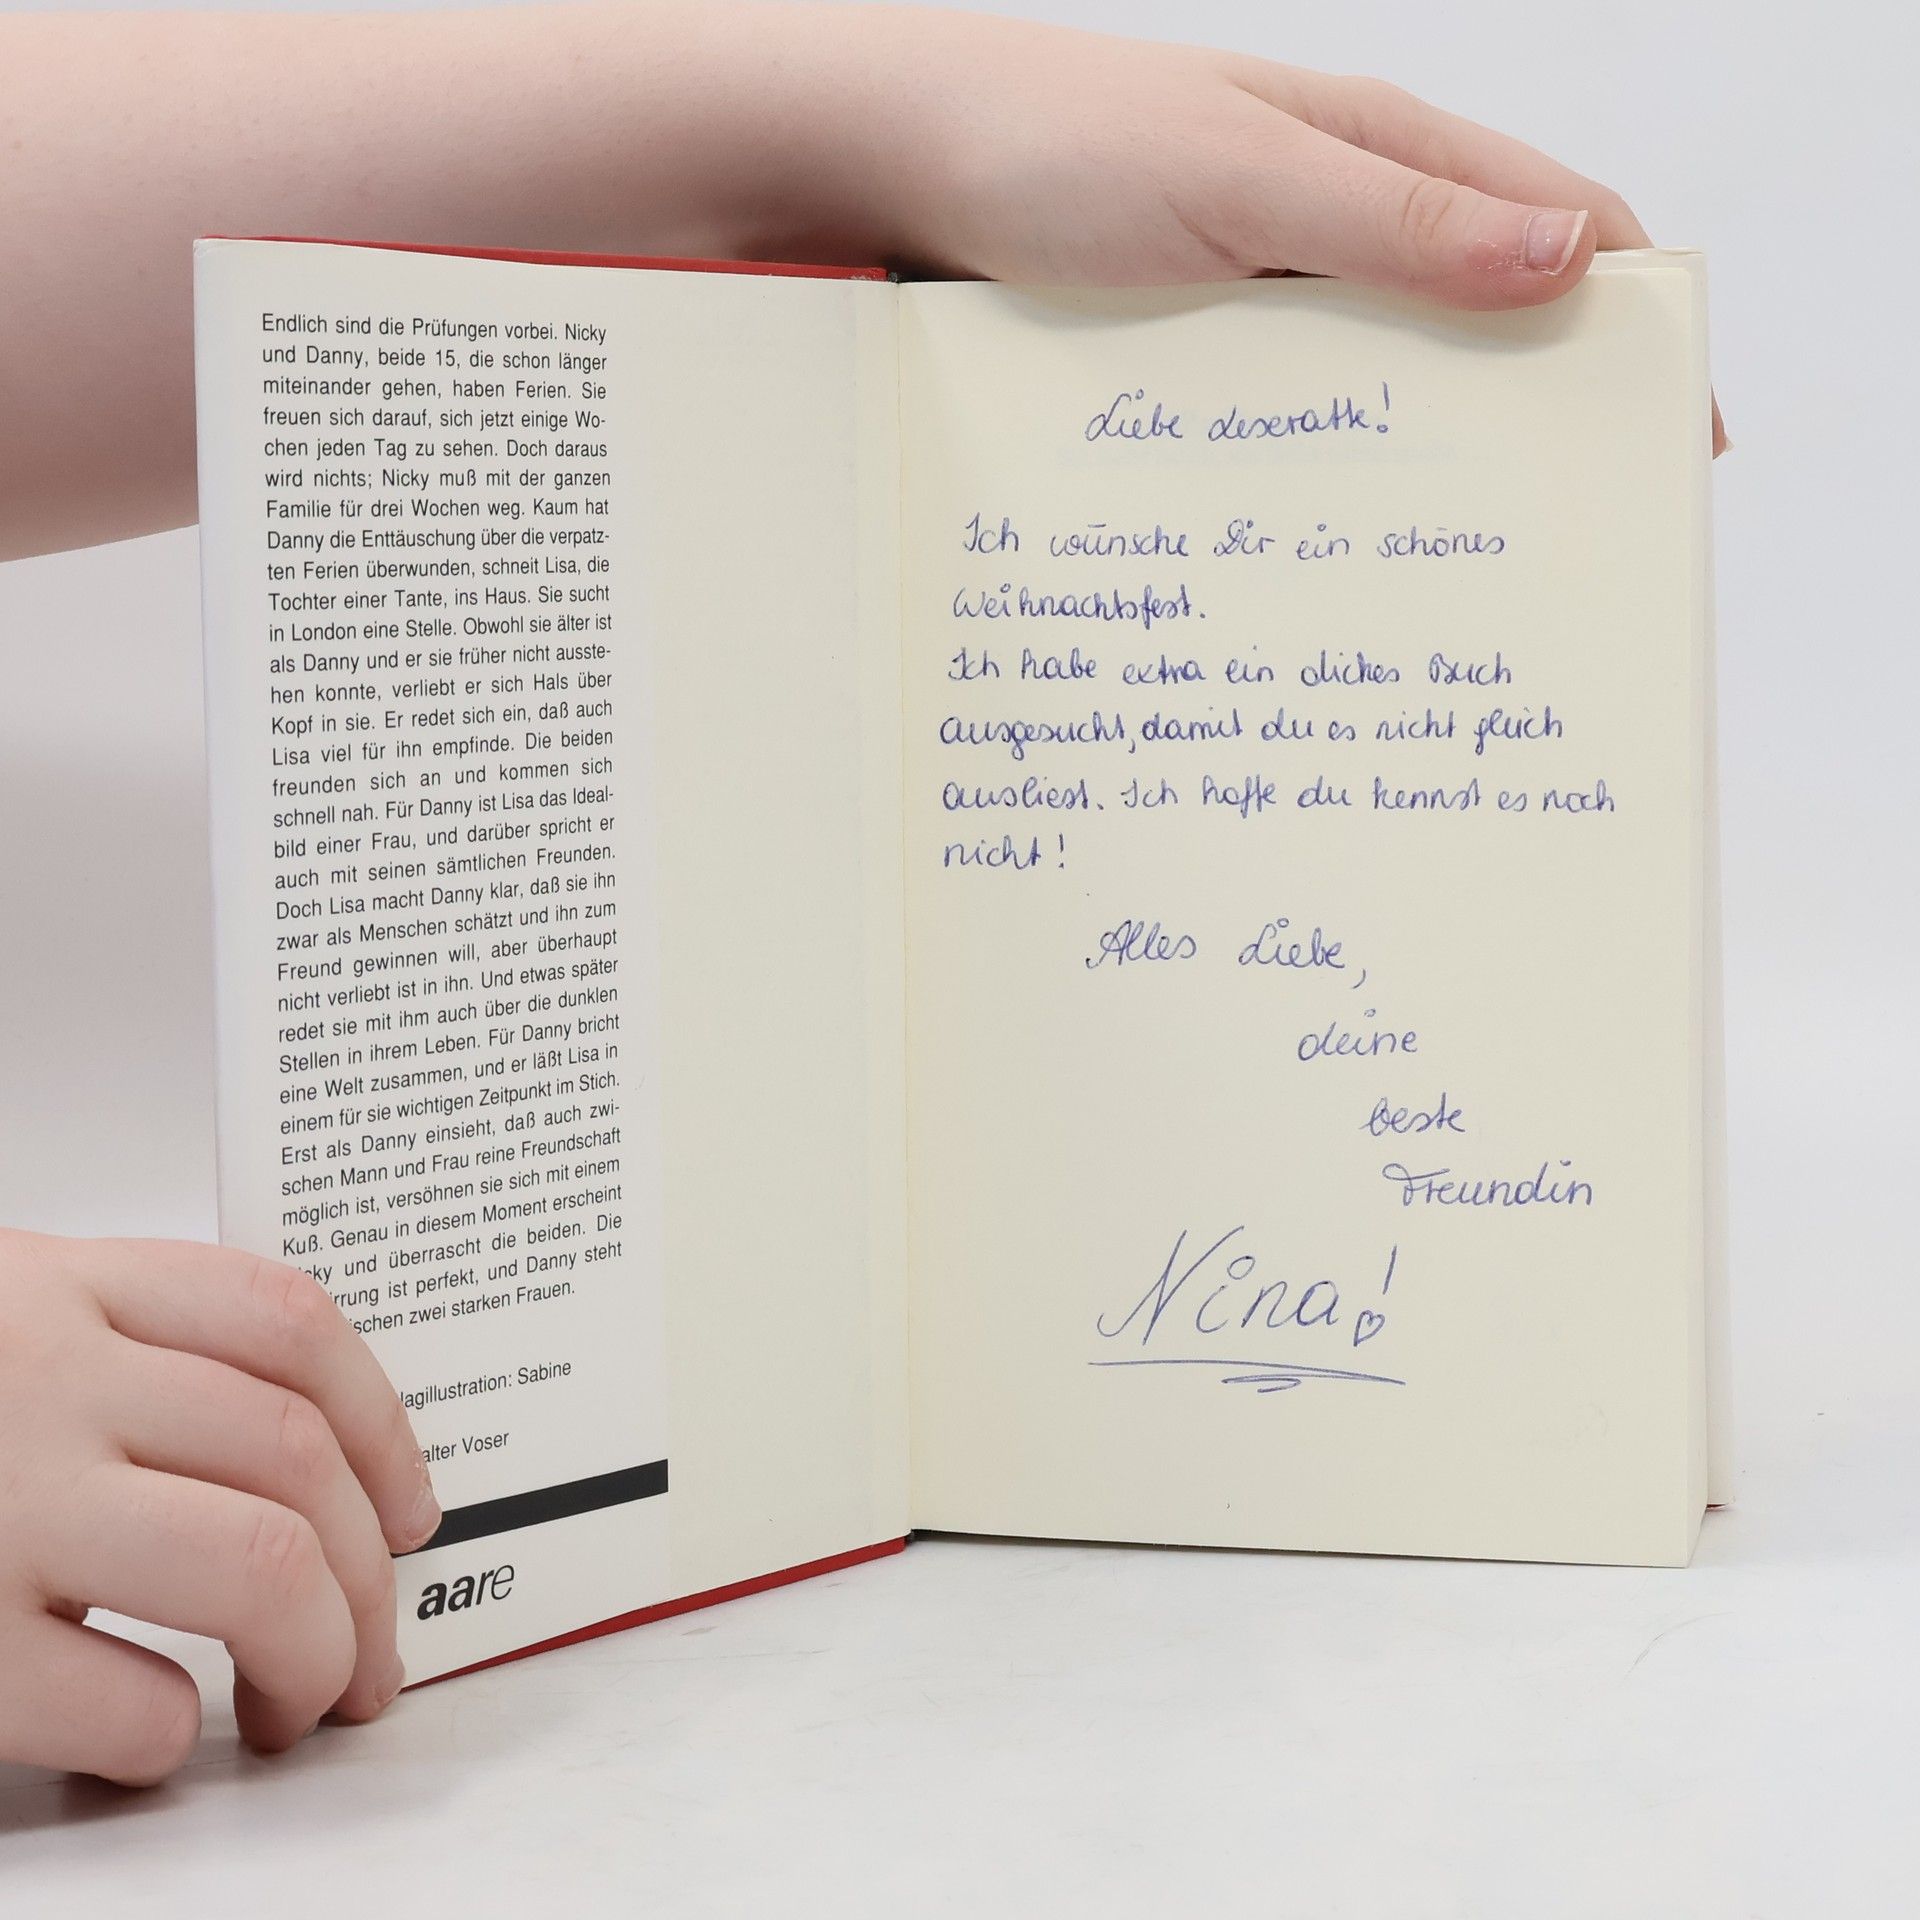 Endlich sind die Prüfungen vorbei. Nicky
und Danny, beide 15, die schon länger
miteinander gehen, haben Ferien. Sie
freuen sich darauf, sich jetzt einige Wo-
chen jeden Tag zu sehen. Doch daraus
wird nichts; Nicky muß mit der ganzen
Familie für drei Wochen weg. Kaum hat
Danny die Enttäuschung über die verpatz-
ten Ferien überwunden, schneit Lisa, die
Tochter einer Tante, ins Haus. Sie sucht
in London eine Stelle. Obwohl sie älter ist
als Danny und er sie früher nicht ausste-
hen konnte, verliebt er sich Hals über
Kopf in sie. Er redet sich ein, daß auch
Lisa viel für ihn empfinde. Die beiden
freunden sich an und kommen sich
schnell nah. Für Danny ist Lisa das Ideal-
bild einer Frau, und darüber spricht er
auch mit seinen sämtlichen Freunden.
Doch Lisa macht Danny klar, daß sie ihn
zwar als Menschen schätzt und ihn zum
Freund gewinnen will, aber überhaupt
nicht verliebt ist in ihn. Und etwas später
redet sie mit ihm auch über die dunklen
Stellen in ihrem Leben. Für Danny bricht
eine Welt zusammen, und er läßt Lisa in
einem für sie wichtigen Zeitpunkt im Stich.
Erst als Danny einsieht, daß auch zwi-
schen Mann und Frau reine Freundschaft
möglich ist, versöhnen sie sich mit einem
Kuß. Genau in diesem Moment erscheint
cky und überrascht die beiden. Die
rrung ist perfekt, und Danny steht
ischen zwei starken Frauen.
lagillustration: Sabine
alter Voser
aare
Liebe Leseratte!
Ich wünsche Dir ein schönes
Weihnachtsfest.
Ich habe extra ein dickes Buch
ausgesucht, damit du es nicht gleich
ausliest. Ich hoffe du kennst es noch
nicht!
Alles Liebe,
deine
beste
Freundin
Nina!